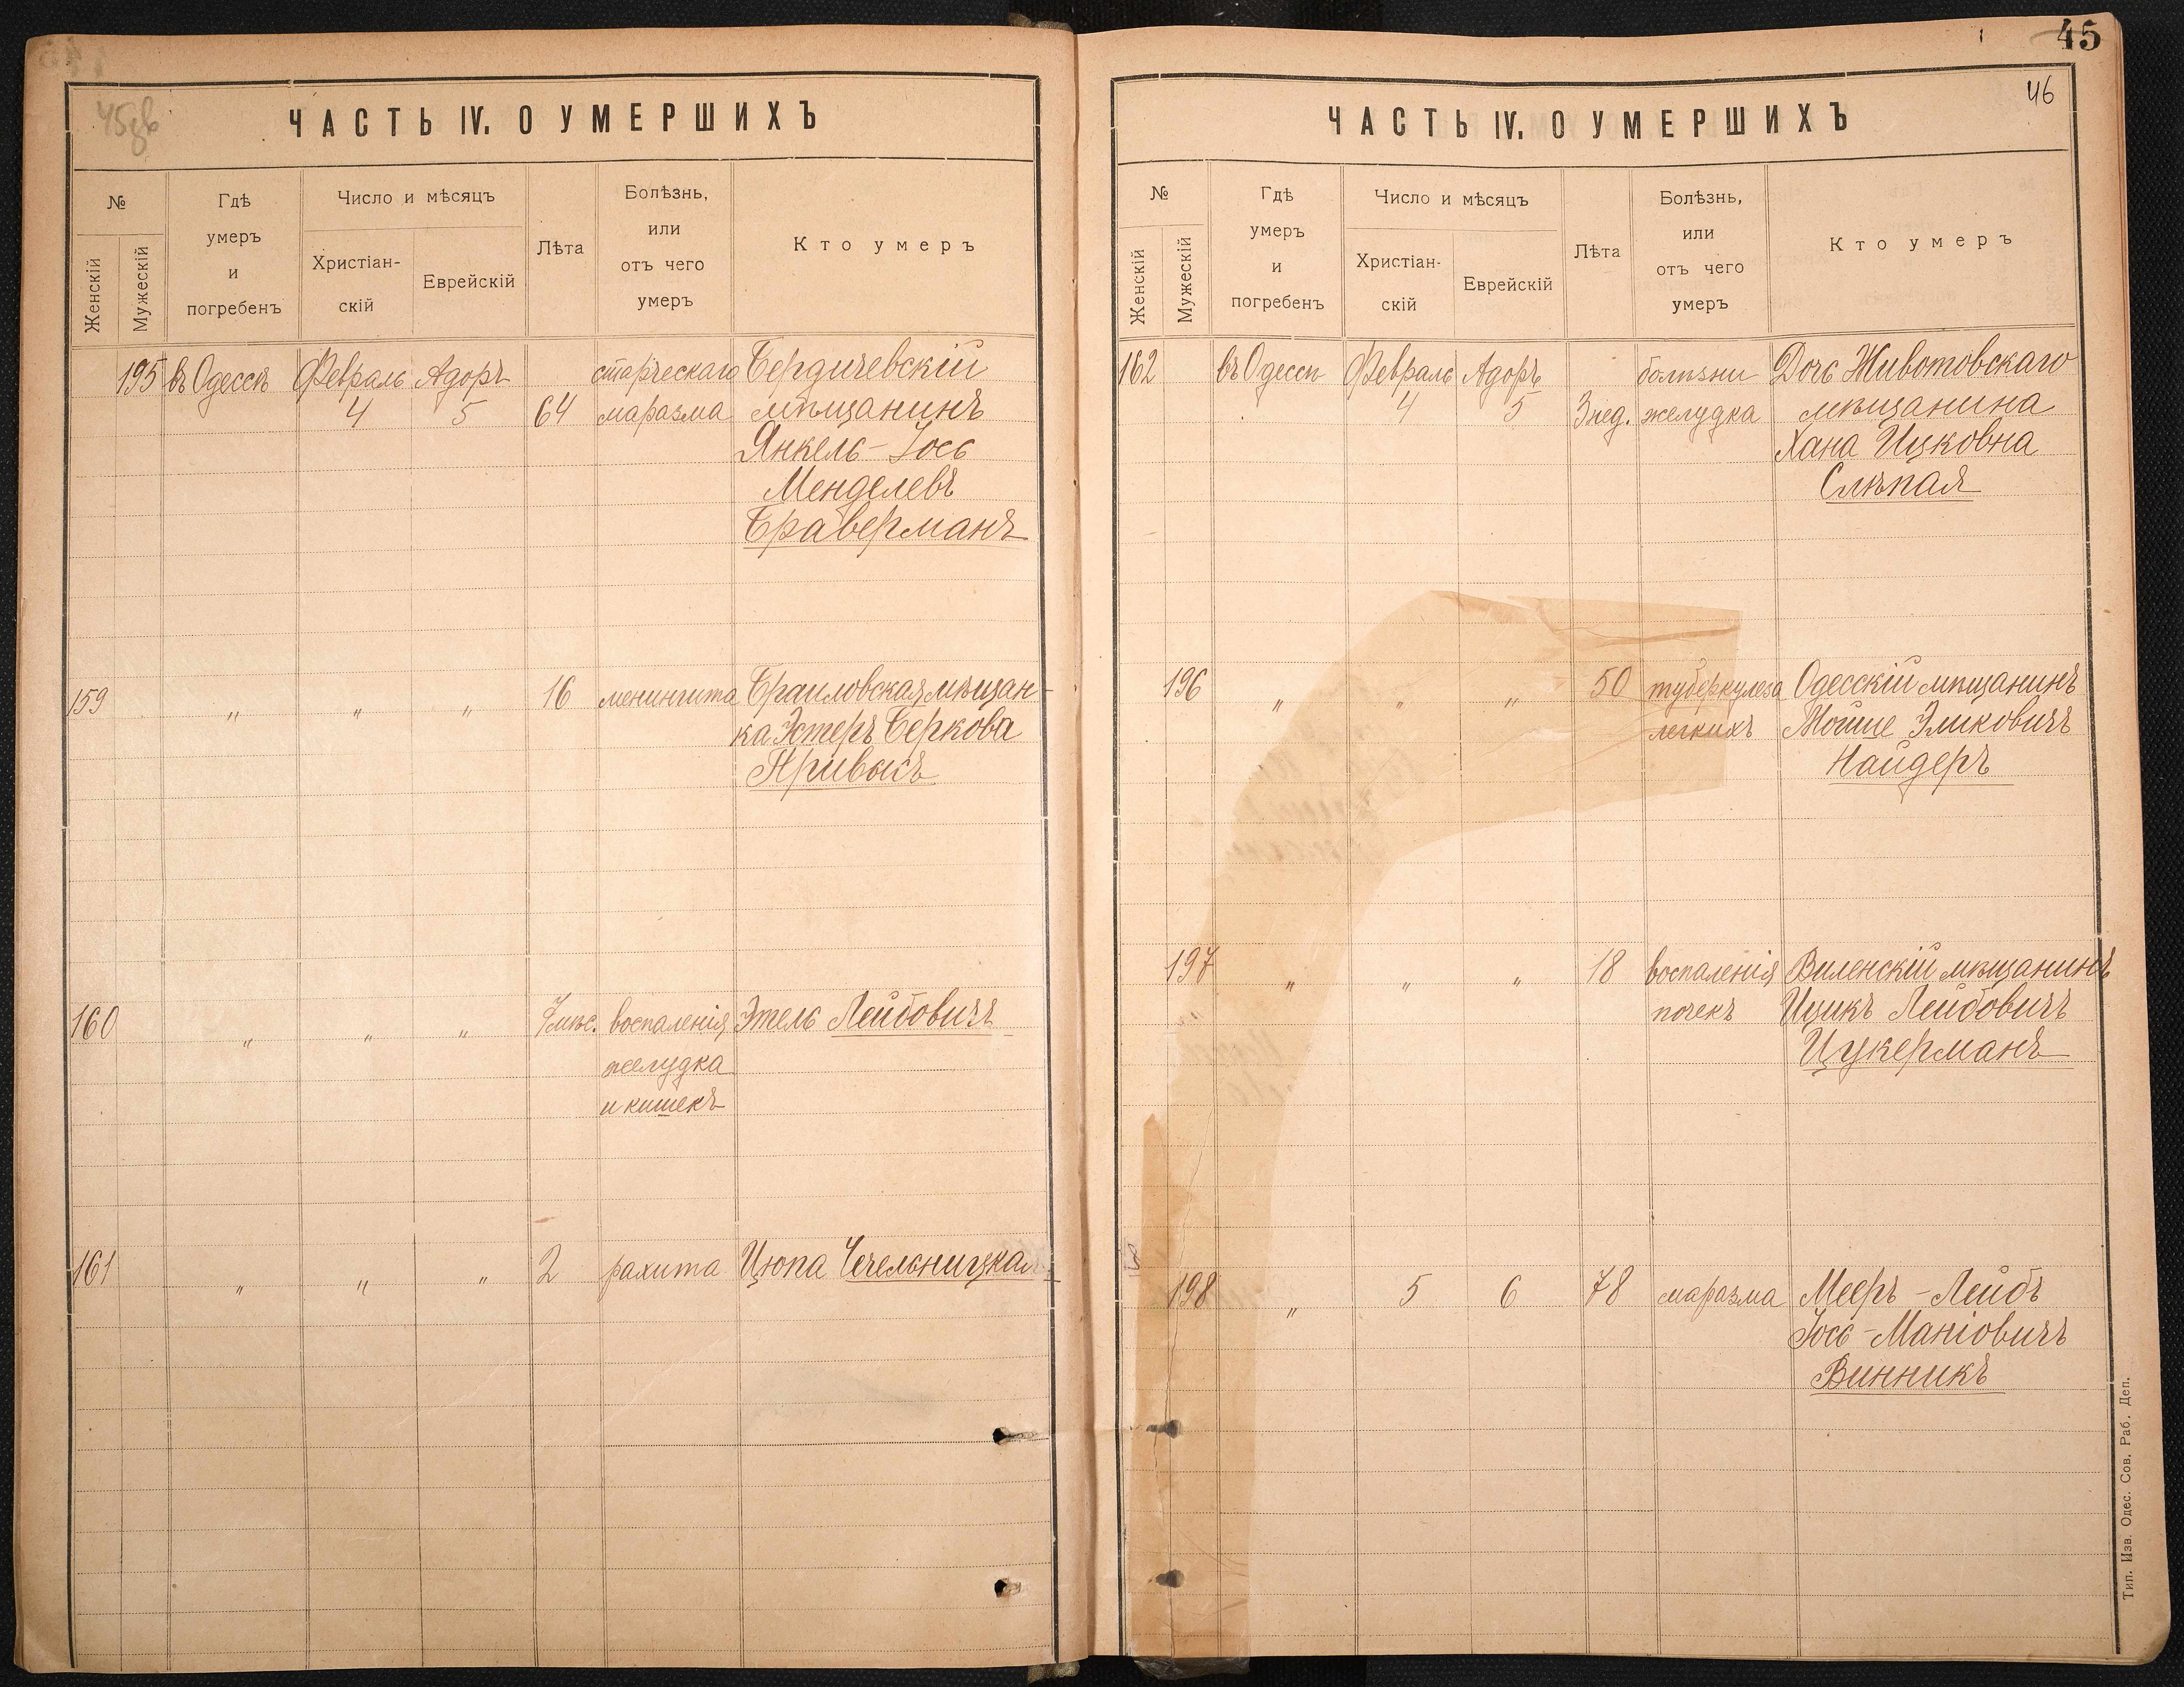 45зв
ЧАСТЬ IV. О УМЕРШИХЪ
№
Женскій
Мужескій
Гдѣ
умеръ
и
погребенъ
Число и мѣсяцъ
Христіан-
скій
Еврейскій
Лѣта
Болѣзнь,
или
отъ чего
умеръ
Кто умеръ
195 въ Одессѣ Февраль Адоръ старческаго Бердичевскій
4 5 64 маразма мѣщанинъ
Янкель-Іось
Менделевъ
Браверманъ
159 " " " 16 менингита Браиловская мѣщан-
ка Эстеръ Беркова
Привысъ
160 " " " 7 мѣс. воспаленія Этель Лейбовичъ
желудка
и кишекъ
161 " " " 2 рахита Цюпа Чечельницкая
45
46
ЧАСТЬ IV. О УМЕРШИХЪ
№
Женскій
Мужескій
Гдѣ
умеръ
и
погребенъ
Число и мѣсяцъ
Христіан-
скій
Еврейскій
Лѣта
Болѣзнь,
или
отъ чего
умеръ
Кто умеръ
162 въ Одессѣ Февраль Адоръ болѣзни Дочь Животовскаго
4 5 3 нед. желудка мѣщанина
Хана Ицковна
Слѣпая
196 " " " 50 туберкулеза Одесскій мѣщанинъ
легкихъ Мойше Эликовичъ
Найдеръ
197 " " " 18 воспаленія Виленскій мѣщанинъ
почекъ Ицикъ Лейбовичъ
Цукерманъ
198 " 5 6 78 маразма Мееръ-Лейбъ
Іось-Маніовичъ
Винникъ
Тип. Изв. Одес. Сов. Раб. Деп.